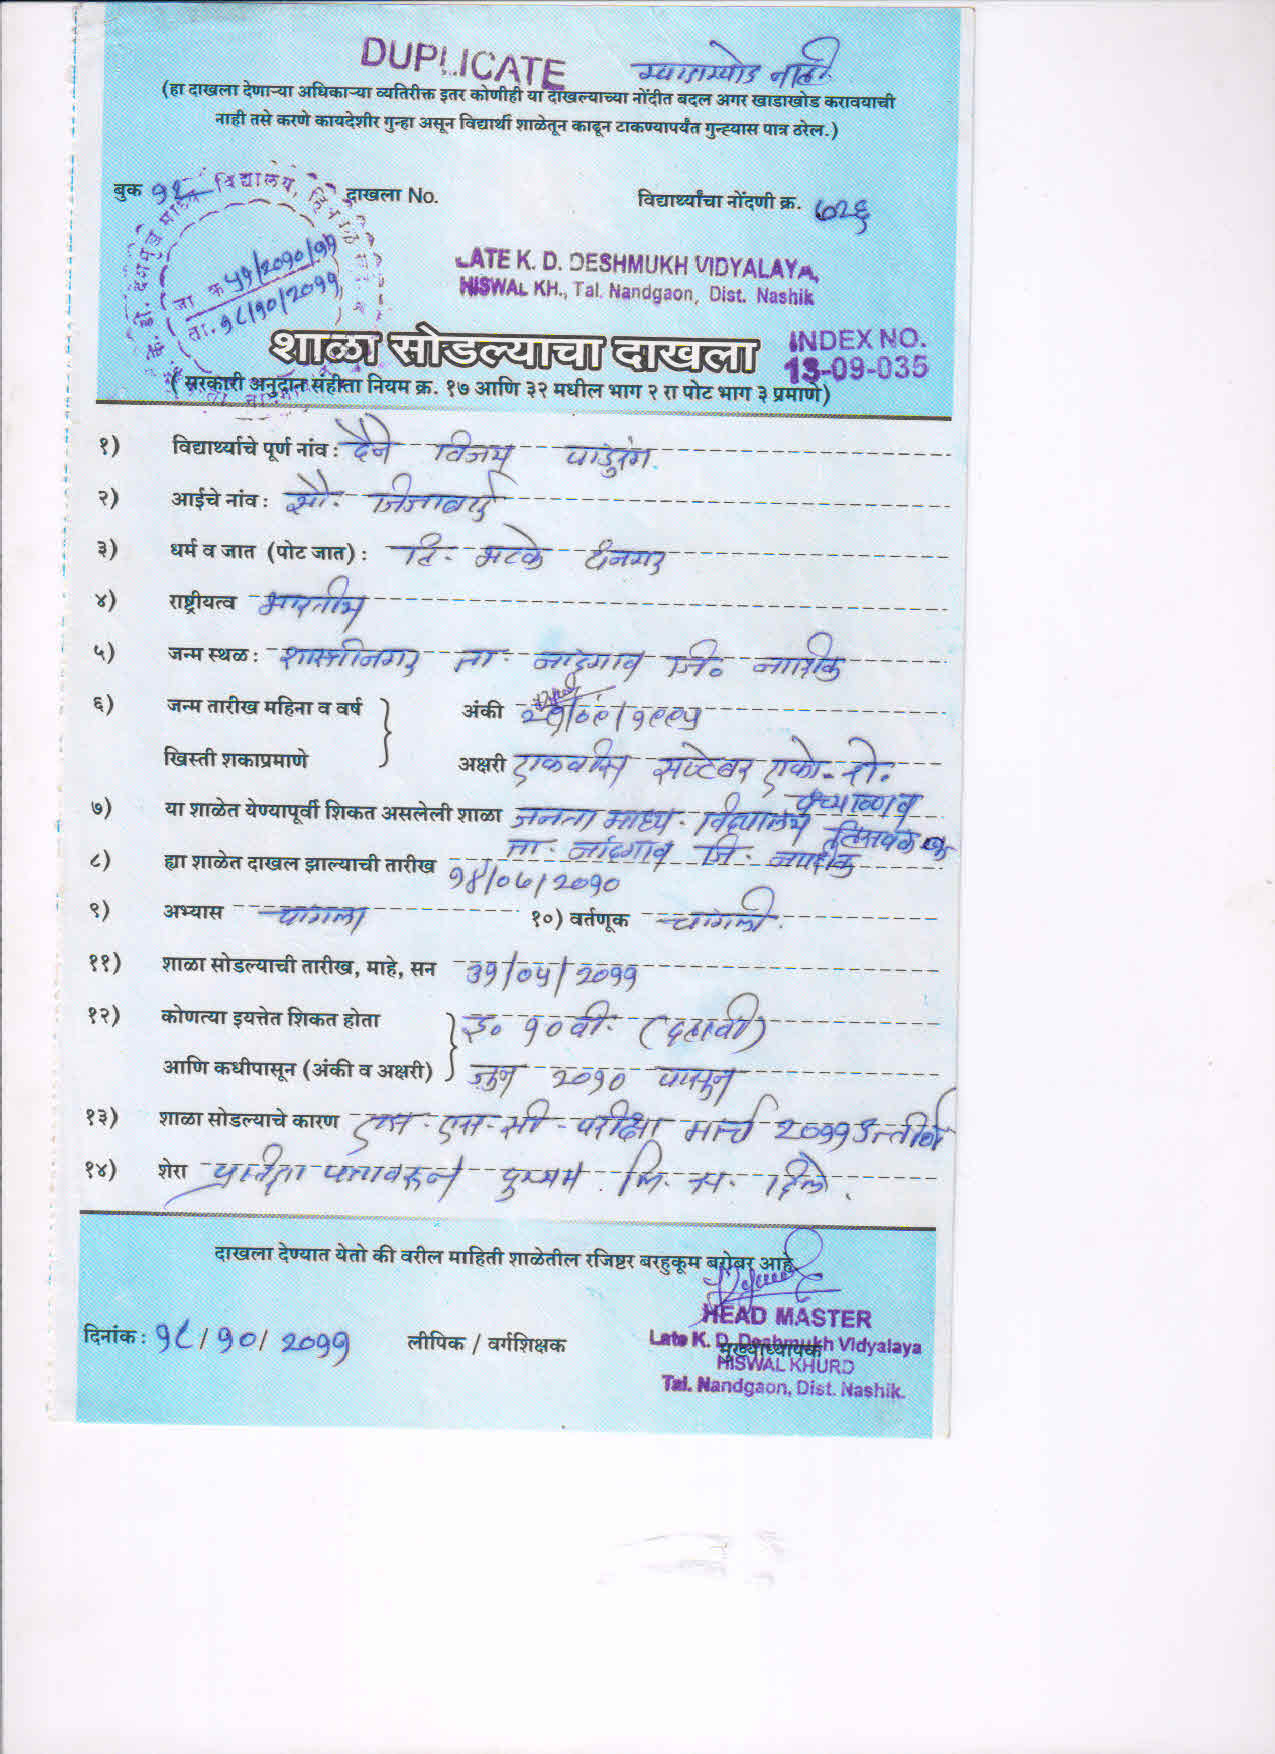 DUPLICATE
(हा दाखला देणाऱ्या अधिकाऱ्या व्यतिरीक्त इतर कोणीही या दाखल्याच्या नोंदीत बदल अगर खाडाखोड करावयाची
नाही तसे करणे कायदेशीर गुन्हा असून विद्यार्थी शाळेतून काढून टाकण्यापर्यंत गुन्ह्यास पात्र ठरेल.)
बुक दाखला No. विद्यार्थ्यांचा नोंदणी क्र. ७२६
जा. क्र ५१/२०१०/११
ता. १८/१०/२०११
LATE K. D. DESHMUKH VIDYALAYA,
HISWAL KH., Tal. Nandgaon, Dist. Nashik
शाळा सोडल्याचा दाखला
INDEX NO.
13-09-035
( सरकारी अनुदान संहीता नियम क्र. १७ आणि ३२ मधील भाग २ रा पोट भाग ३ प्रमाणे)
१) विद्यार्थ्याचे पूर्ण नांव : दैने विजय पांडुरंग.
२) आईचे नांव : सौ. जिजाबाई
३) धर्म व जात (पोट जात) : हि. भटके धनगर
४) राष्ट्रीयत्व भारतीय
५) जन्म स्थळ : शास्त्रीनगर ता. नांदगाव जि० नाशिक
६) जन्म तारीख महिना व वर्ष अंकी २१/०९/१९९५
खिस्ती शकाप्रमाणे अक्षरी एकवीस सप्टेंबर एको. शे.
पंच्याण्णव
७) या शाळेत येण्यापूर्वी शिकत असलेली शाळा जनता माध्य. विद्यालय
ता. नांदगाव जि. नाशिक
८) ह्या शाळेत दाखल झाल्याची तारीख १४/०७/२०१०
९) अभ्यास चांगला १०) वर्तणूक चांगली.
११) शाळा सोडल्याची तारीख, माहे, सन ३१/०५/२०११
१२) कोणत्या इयत्तेत शिकत होता इ० १० वी. (दहावी)
आणि कधीपासून (अंकी व अक्षरी) जून २०१० पासून
१३) शाळा सोडल्याचे कारण एस. एस. सी. परीक्षा मार्च २०११ उत्तीर्ण
१४) शेरा प्रतिज्ञा पत्रावरून दुय्यम दिले.
दाखला देण्यात येतो की वरील माहिती शाळेतील रजिष्टर बरहुकूम बरोबर आहे
दिनांक : १८/१०/२०११ लीपिक / वर्गशिक्षक मुख्याध्यापक
HEAD MASTER
Late K. D. Deshmukh Vidyalaya
HISWAL KHURD
Tal. Nandgaon, Dist. Nashik.